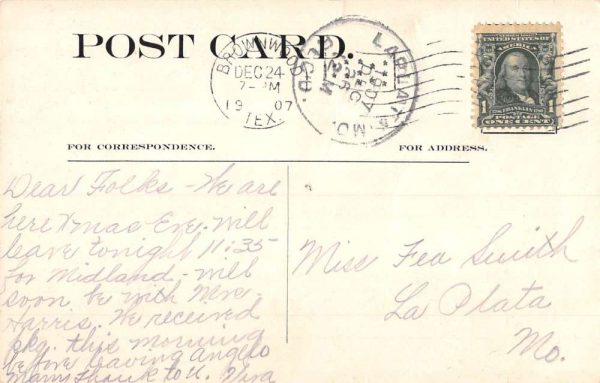 POST CARD.
BROWNWOOD
DEC 24
7-PM
1907
TEX.
LA PLATA, MO.
DEC
26
12 M
1907
REC'D.
UNITED STATES OF AMERICA
FRANKLIN
1 1
POSTAGE
ONE CENT
FOR CORRESPONDENCE.
FOR ADDRESS.
Dear Folks - We are
here Xmas Eve. will
leave tonight 11:35
for Midland - will
soon be with Mrs.
Harris. We received
pkg. this morning
before leaving Anglo
Many thank to U. Viva
Miss Fea Smith
La Plata
Mo.